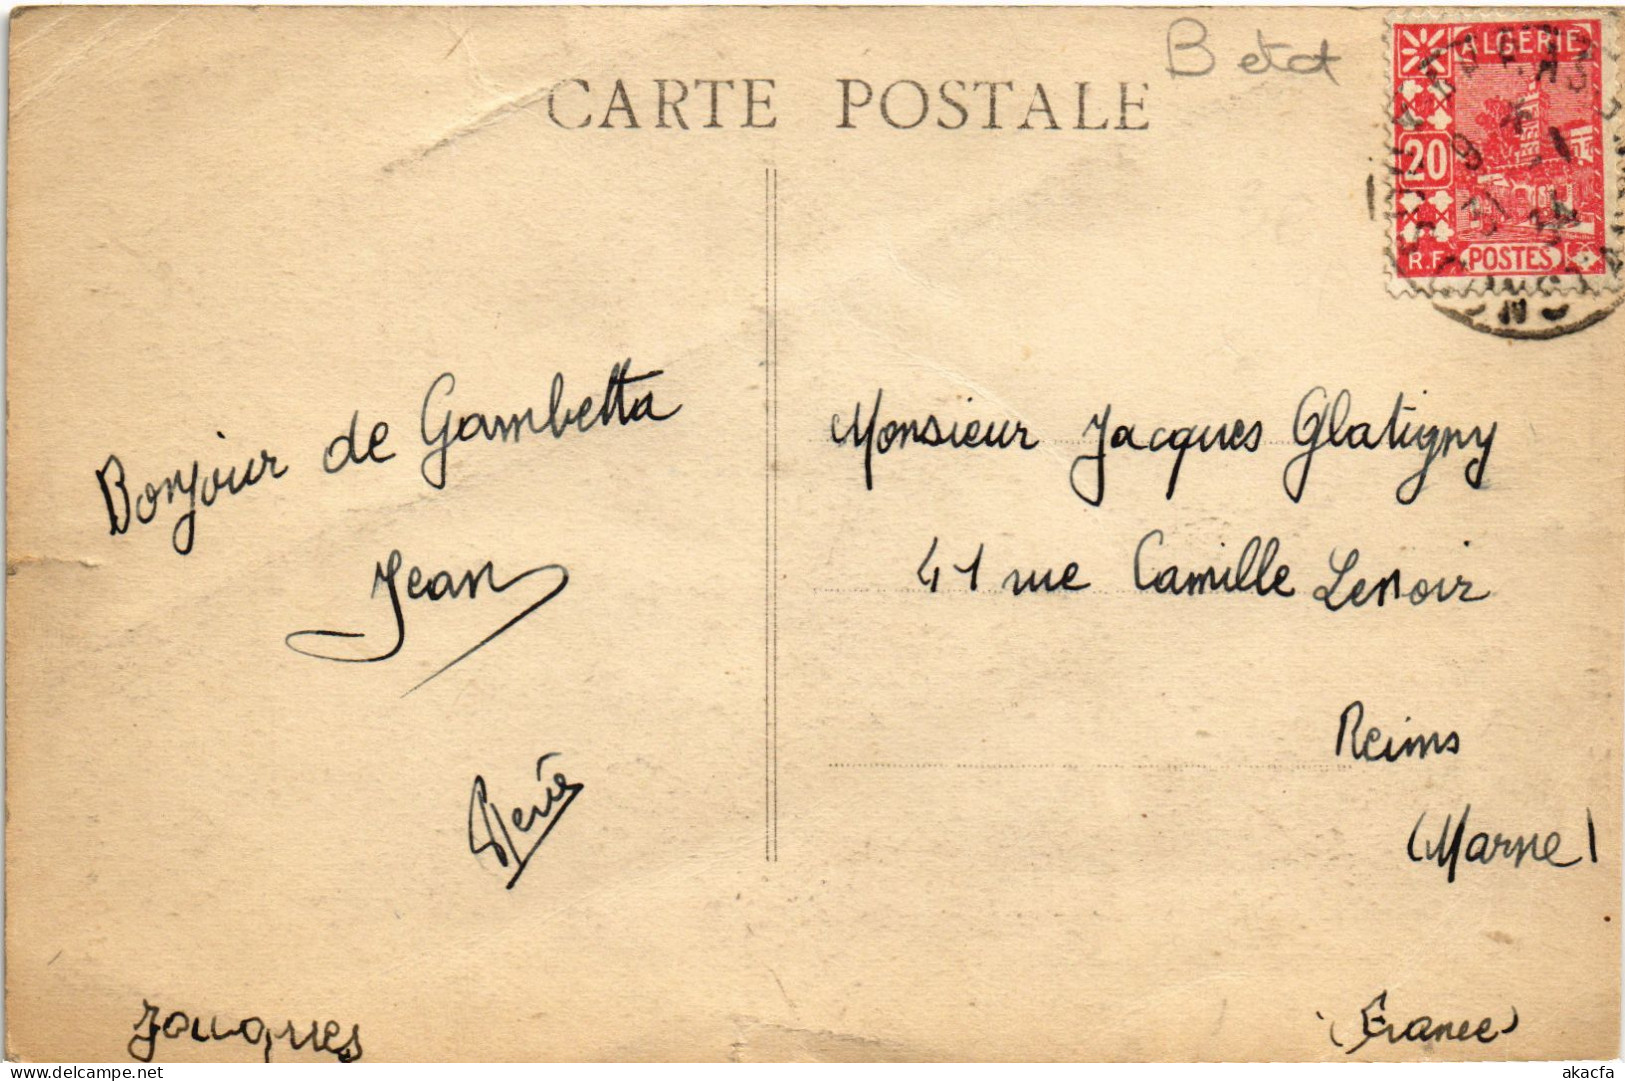 CARTE POSTALE
B etat
ALGERIE
20
R.F. POSTES
Bonjour de Gambetta
Jean
Jacques
Monsieur Jacques Glatigny
41 rue Camille Lenoir
Reims
(Marne)
(France)
akacfa